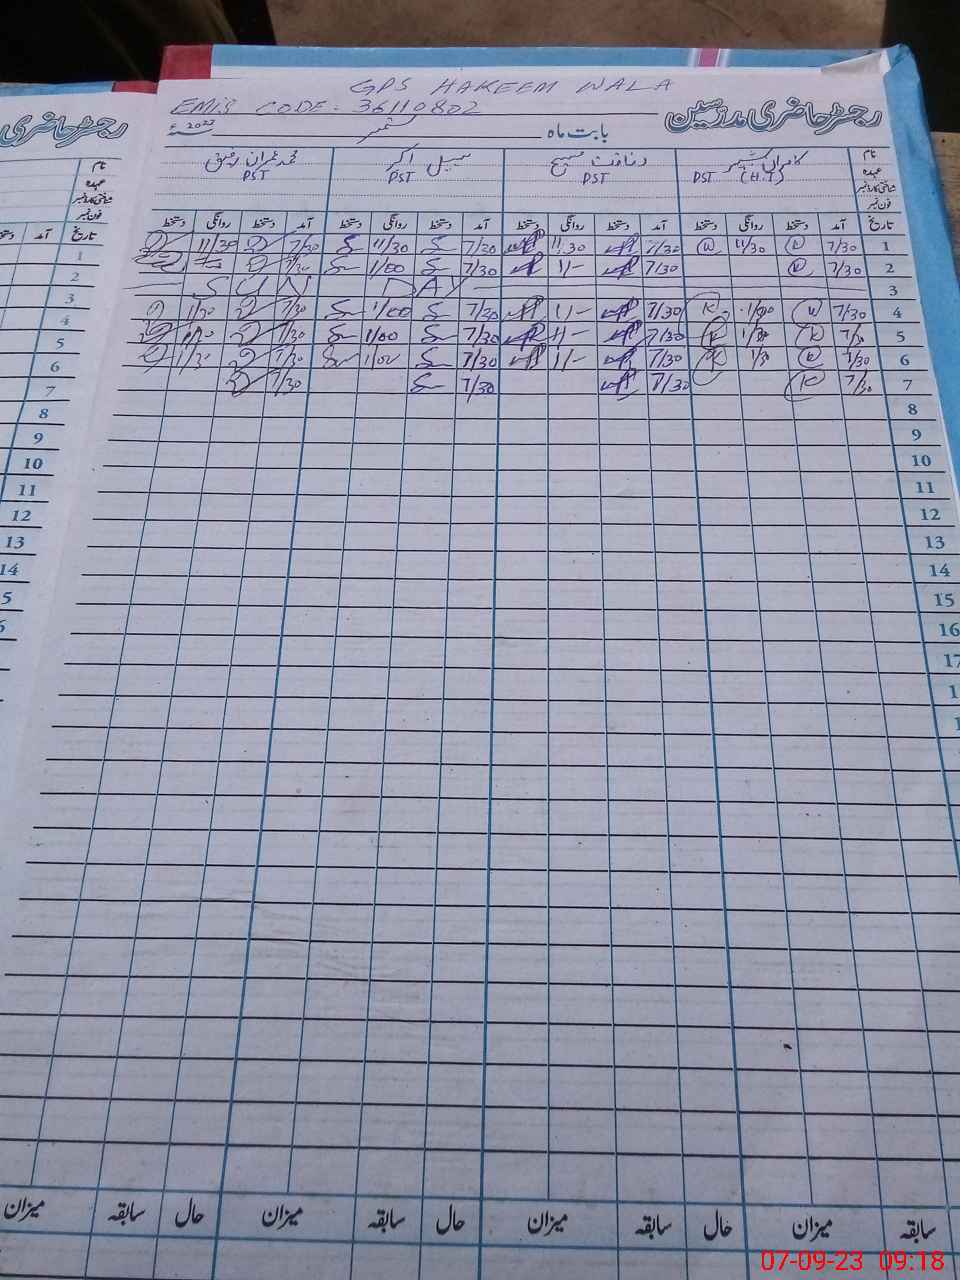 GPS HAKEEM WALA
EMIS CODE: 36110802
رجسٹر حاضری مدرسین
بابت ماہ ستمبر 2023ء
نام
عہدہ
شناختی کارڈ نمبر
فون نمبر
PST (H.T)
PST
سہیل اکبر PST
محمد عمران رفیق PST
تاریخ آمد دستخط روانگی دستخط آمد دستخط روانگی دستخط آمد دستخط روانگی دستخط آمد دستخط روانگی دستخط
1 7/30 11/30 7/30 11:30 7/30 11/30 7/30 11/30
2 7/30 7/30 1/- 7/30 1/00 7/30
3 SUN DAY
4 7/30 7/30 1/- 7/30 1/00 7/30
5 7/30 7/30 7/30 1/00 7/30
6 7/30 1/30 7/30 1/- 7/30 1/00 7/30
7 7/30 7/30 7/30 7/30
8
9
10
11
12
13
14
15
16
17
سابقہ میزان حال سابقہ میزان حال سابقہ میزان حال سابقہ میزان
رجسٹر حاضری
نام
عہدہ
شناختی کارڈ نمبر
فون نمبر
تاریخ آمد
1
2
3
4
5
6
7
8
9
10
11
12
13
14
07-09-23 09:18